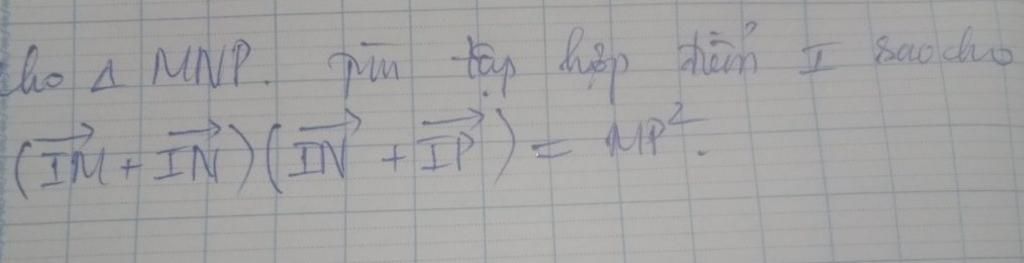 ho Δ MNP. Tìm tập hợp điểm I sao cho
(\overrightarrow{IM} + \overrightarrow{IN})(\overrightarrow{IN} + \overrightarrow{IP}) = MP².